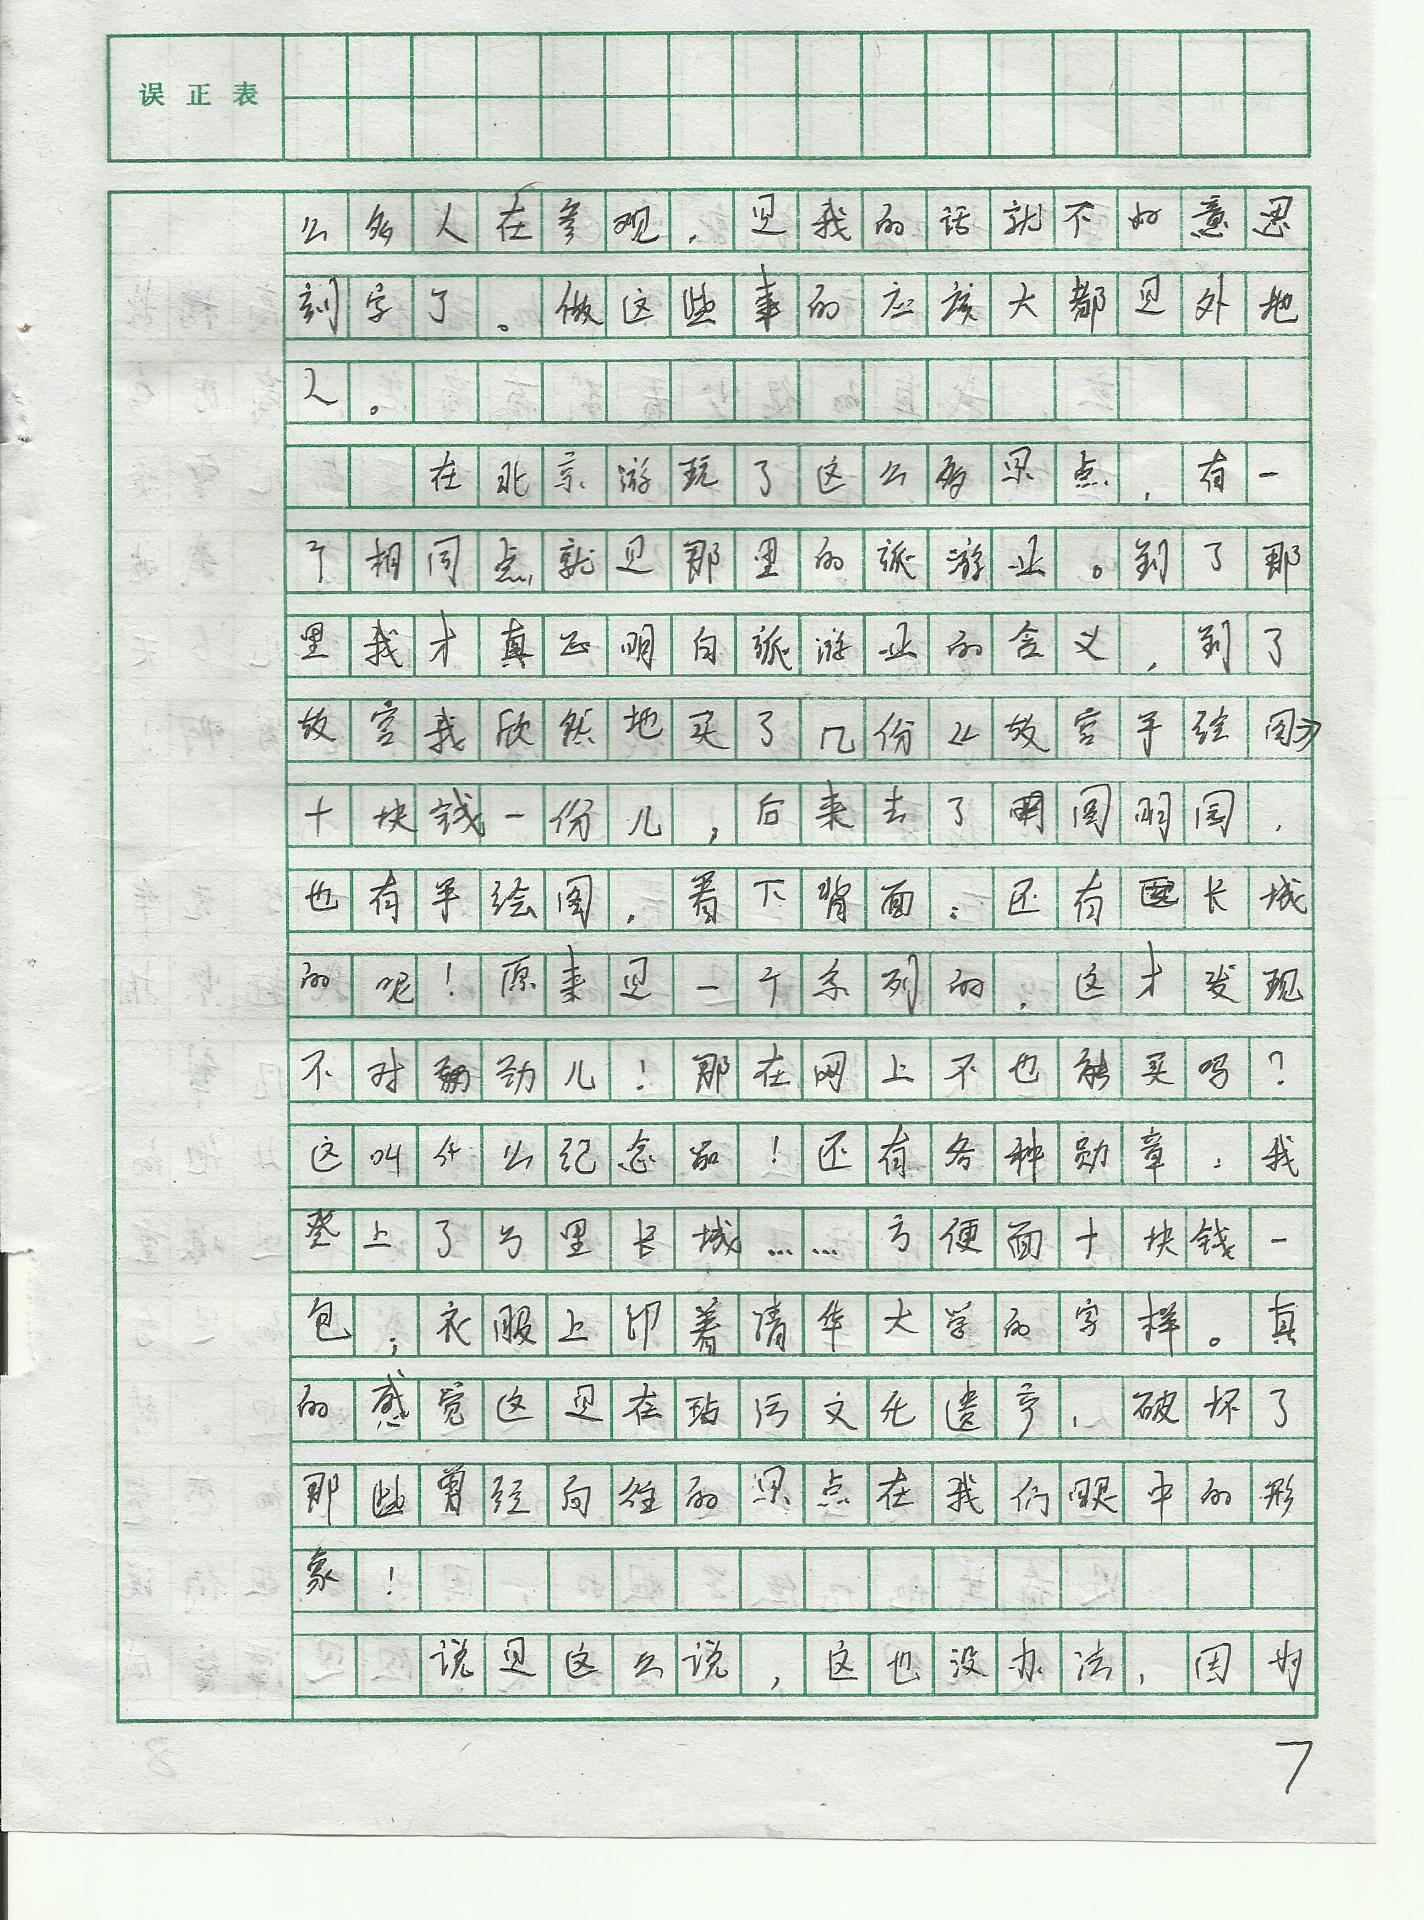 误正表
么多人在参观，是我的话就不好意思
刻字了。做这些事的应该大都是外地
人。
在北京游玩了这么多景点，有一
个相同点，就是那里的旅游业。到了那
里我才真正明白旅游业的含义，到了
故宫我欣然地买了几份《故宫手绘图》
十块钱一份儿，后来去了圆明园，
也有手绘图，看下背面：还有长城
的呢！原来是一个系列的，这才发现
不对劲儿！那在网上不也能买吗？
这叫什么纪念品！还有各种勋章：我
登上了万里长城……方便面十块钱一
包；衣服上印着清华大学的字样。真
的感觉这是在玷污文化遗产，破坏了
那些曾经向往的景点在我们眼中的形
象！
说是这么说，这也没办法，因为
7